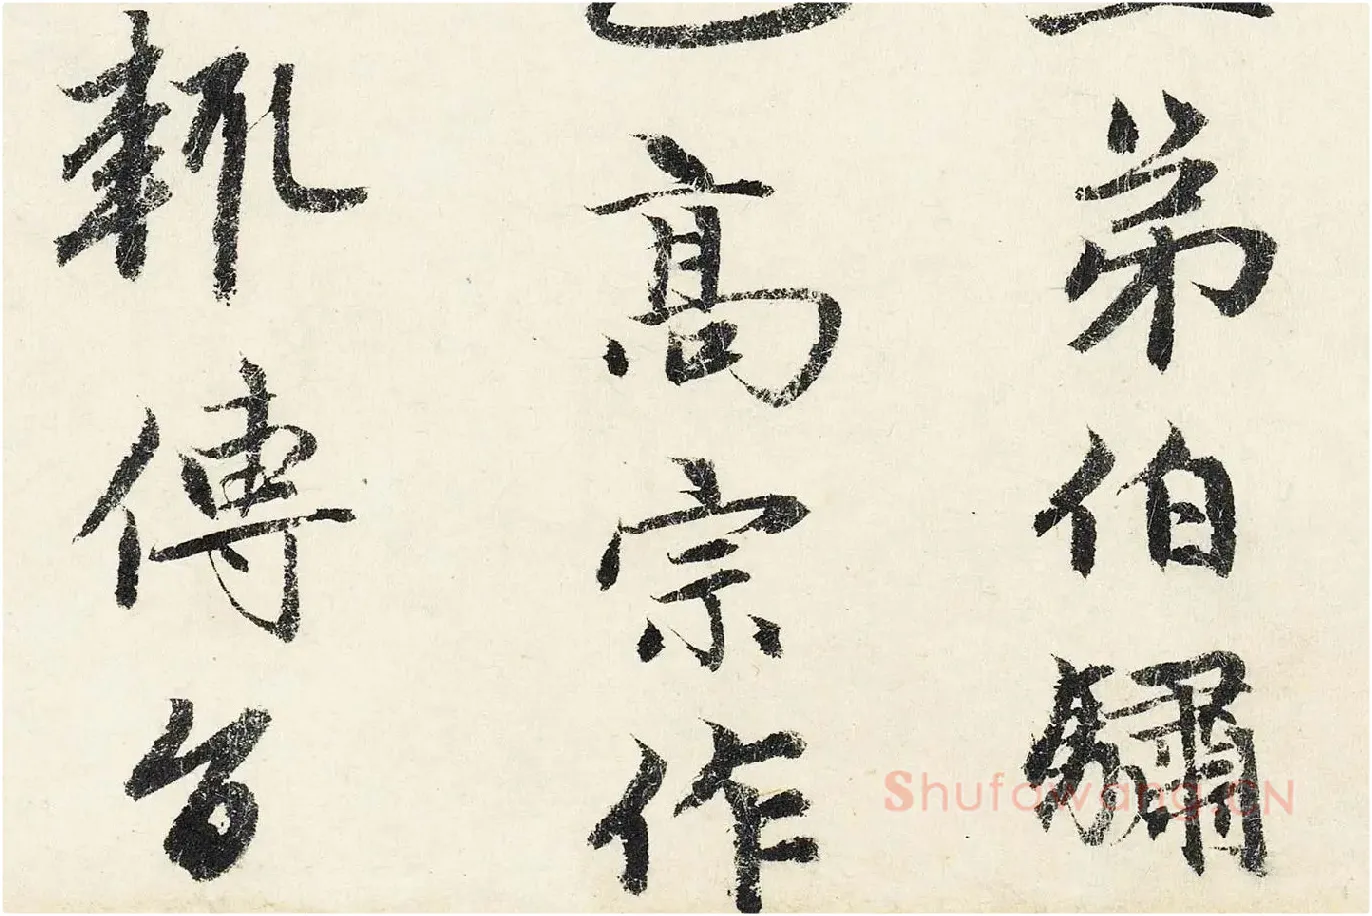 弟伯驌
高宗作
輒傳
Shufawang.CN